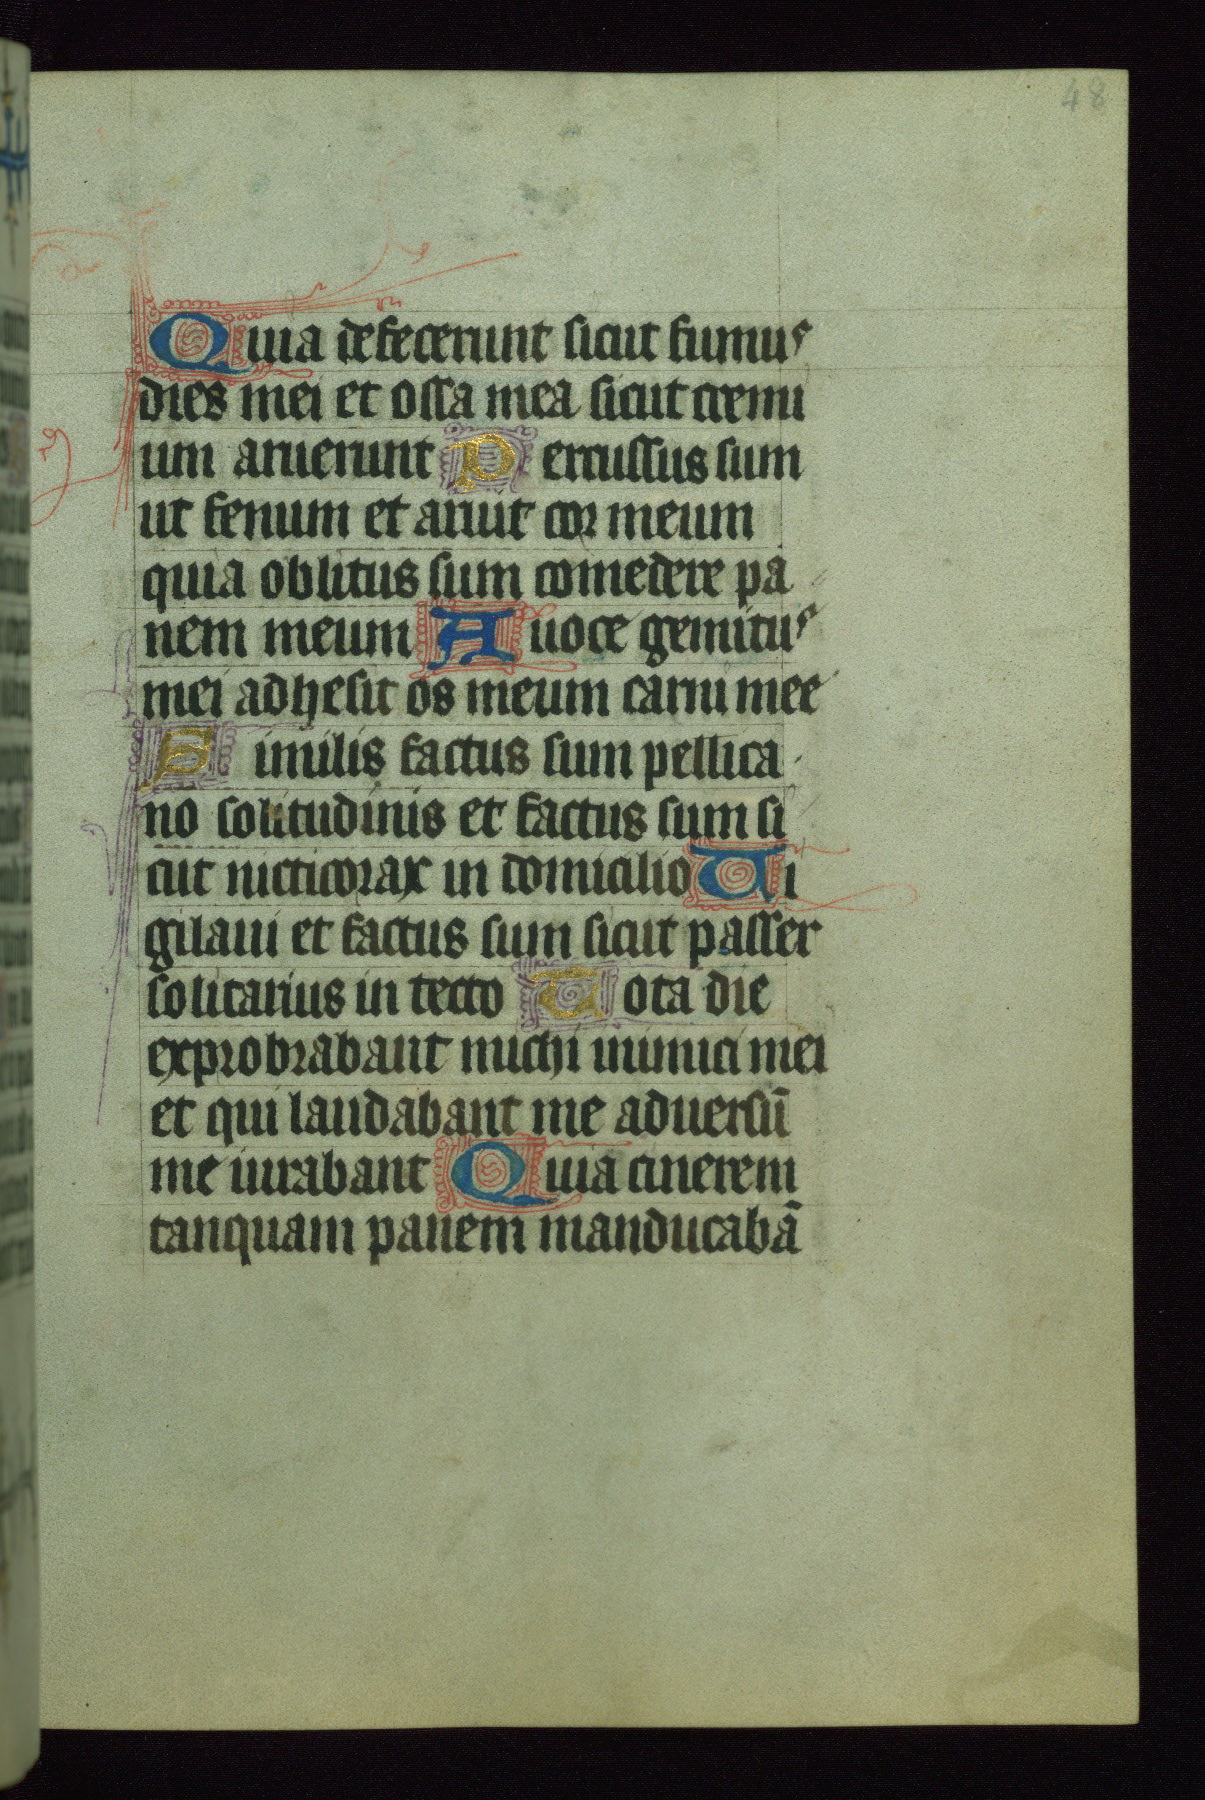 48
Quia defecerunt sicut fumus
dies mei et ossa mea sicut cremi
um aruerunt Percussus sum
ut fenum et aruit cor meum
quia oblitus sum comedere pa
nem meum A uoce gemitus
mei adhesit os meum carni mee
Similis factus sum pellica
no solitudinis et factus sum si
cut nicticorax in domicilio Vi
gilaui et factus sum sicut passer
solitarius in tecto Tota die
exprobrabant michi inimici mei
et qui laudabant me aduersū
me iurabant Quia cinerem
tanquam panem manducabā